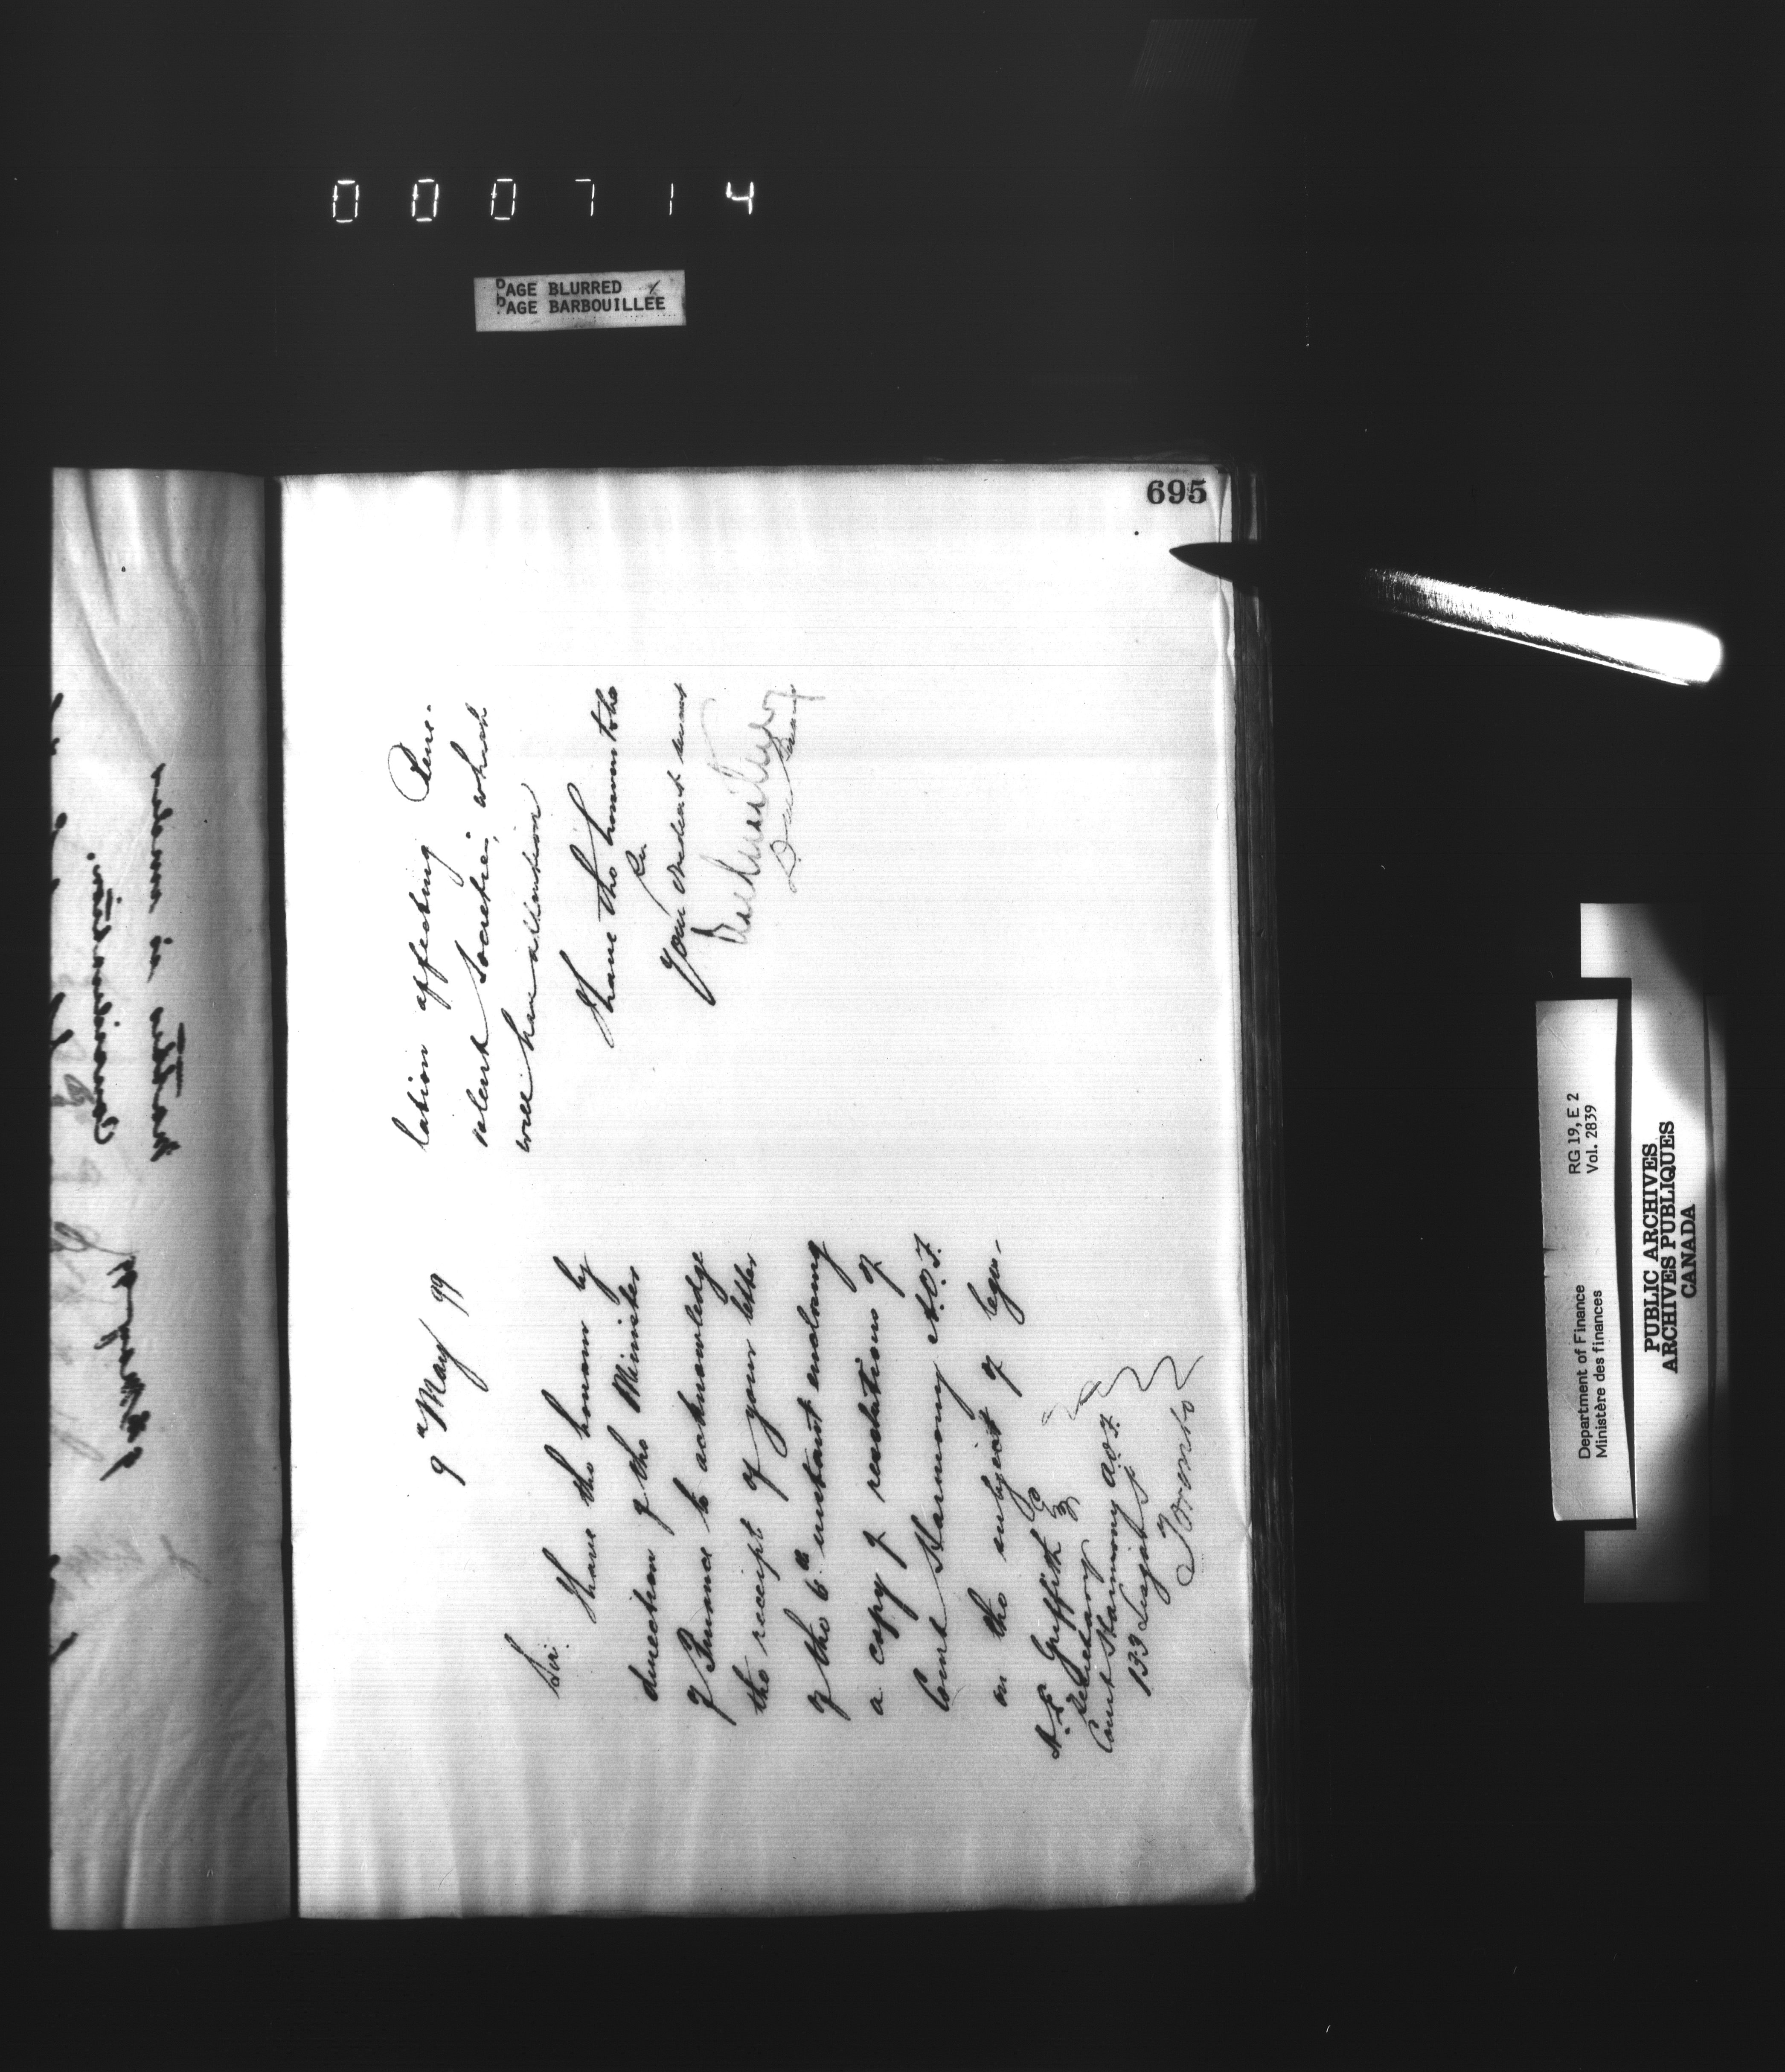 000714
PAGE BLURRED
PAGE BARBOUILLÉE
695
9th May 99
Sir.
I have the honour by
direction of the Minister
of Finance to acknowledge
the receipt of your letter
of the 6th instant enclosing
a copy of resolutions of
Court Harmony A.O.F.
on the subject of legis-
Griffith Esq
Secretary
Court Harmony AOF.
133
Toronto
lation affecting Bene-
volent Societies, which
will have attention
I have the honour to be
Sir
Your obedient servant
Department of Finance
Ministère des finances
RG 19, E 2
Vol. 2839
PUBLIC ARCHIVES
ARCHIVES PUBLIQUES
CANADA